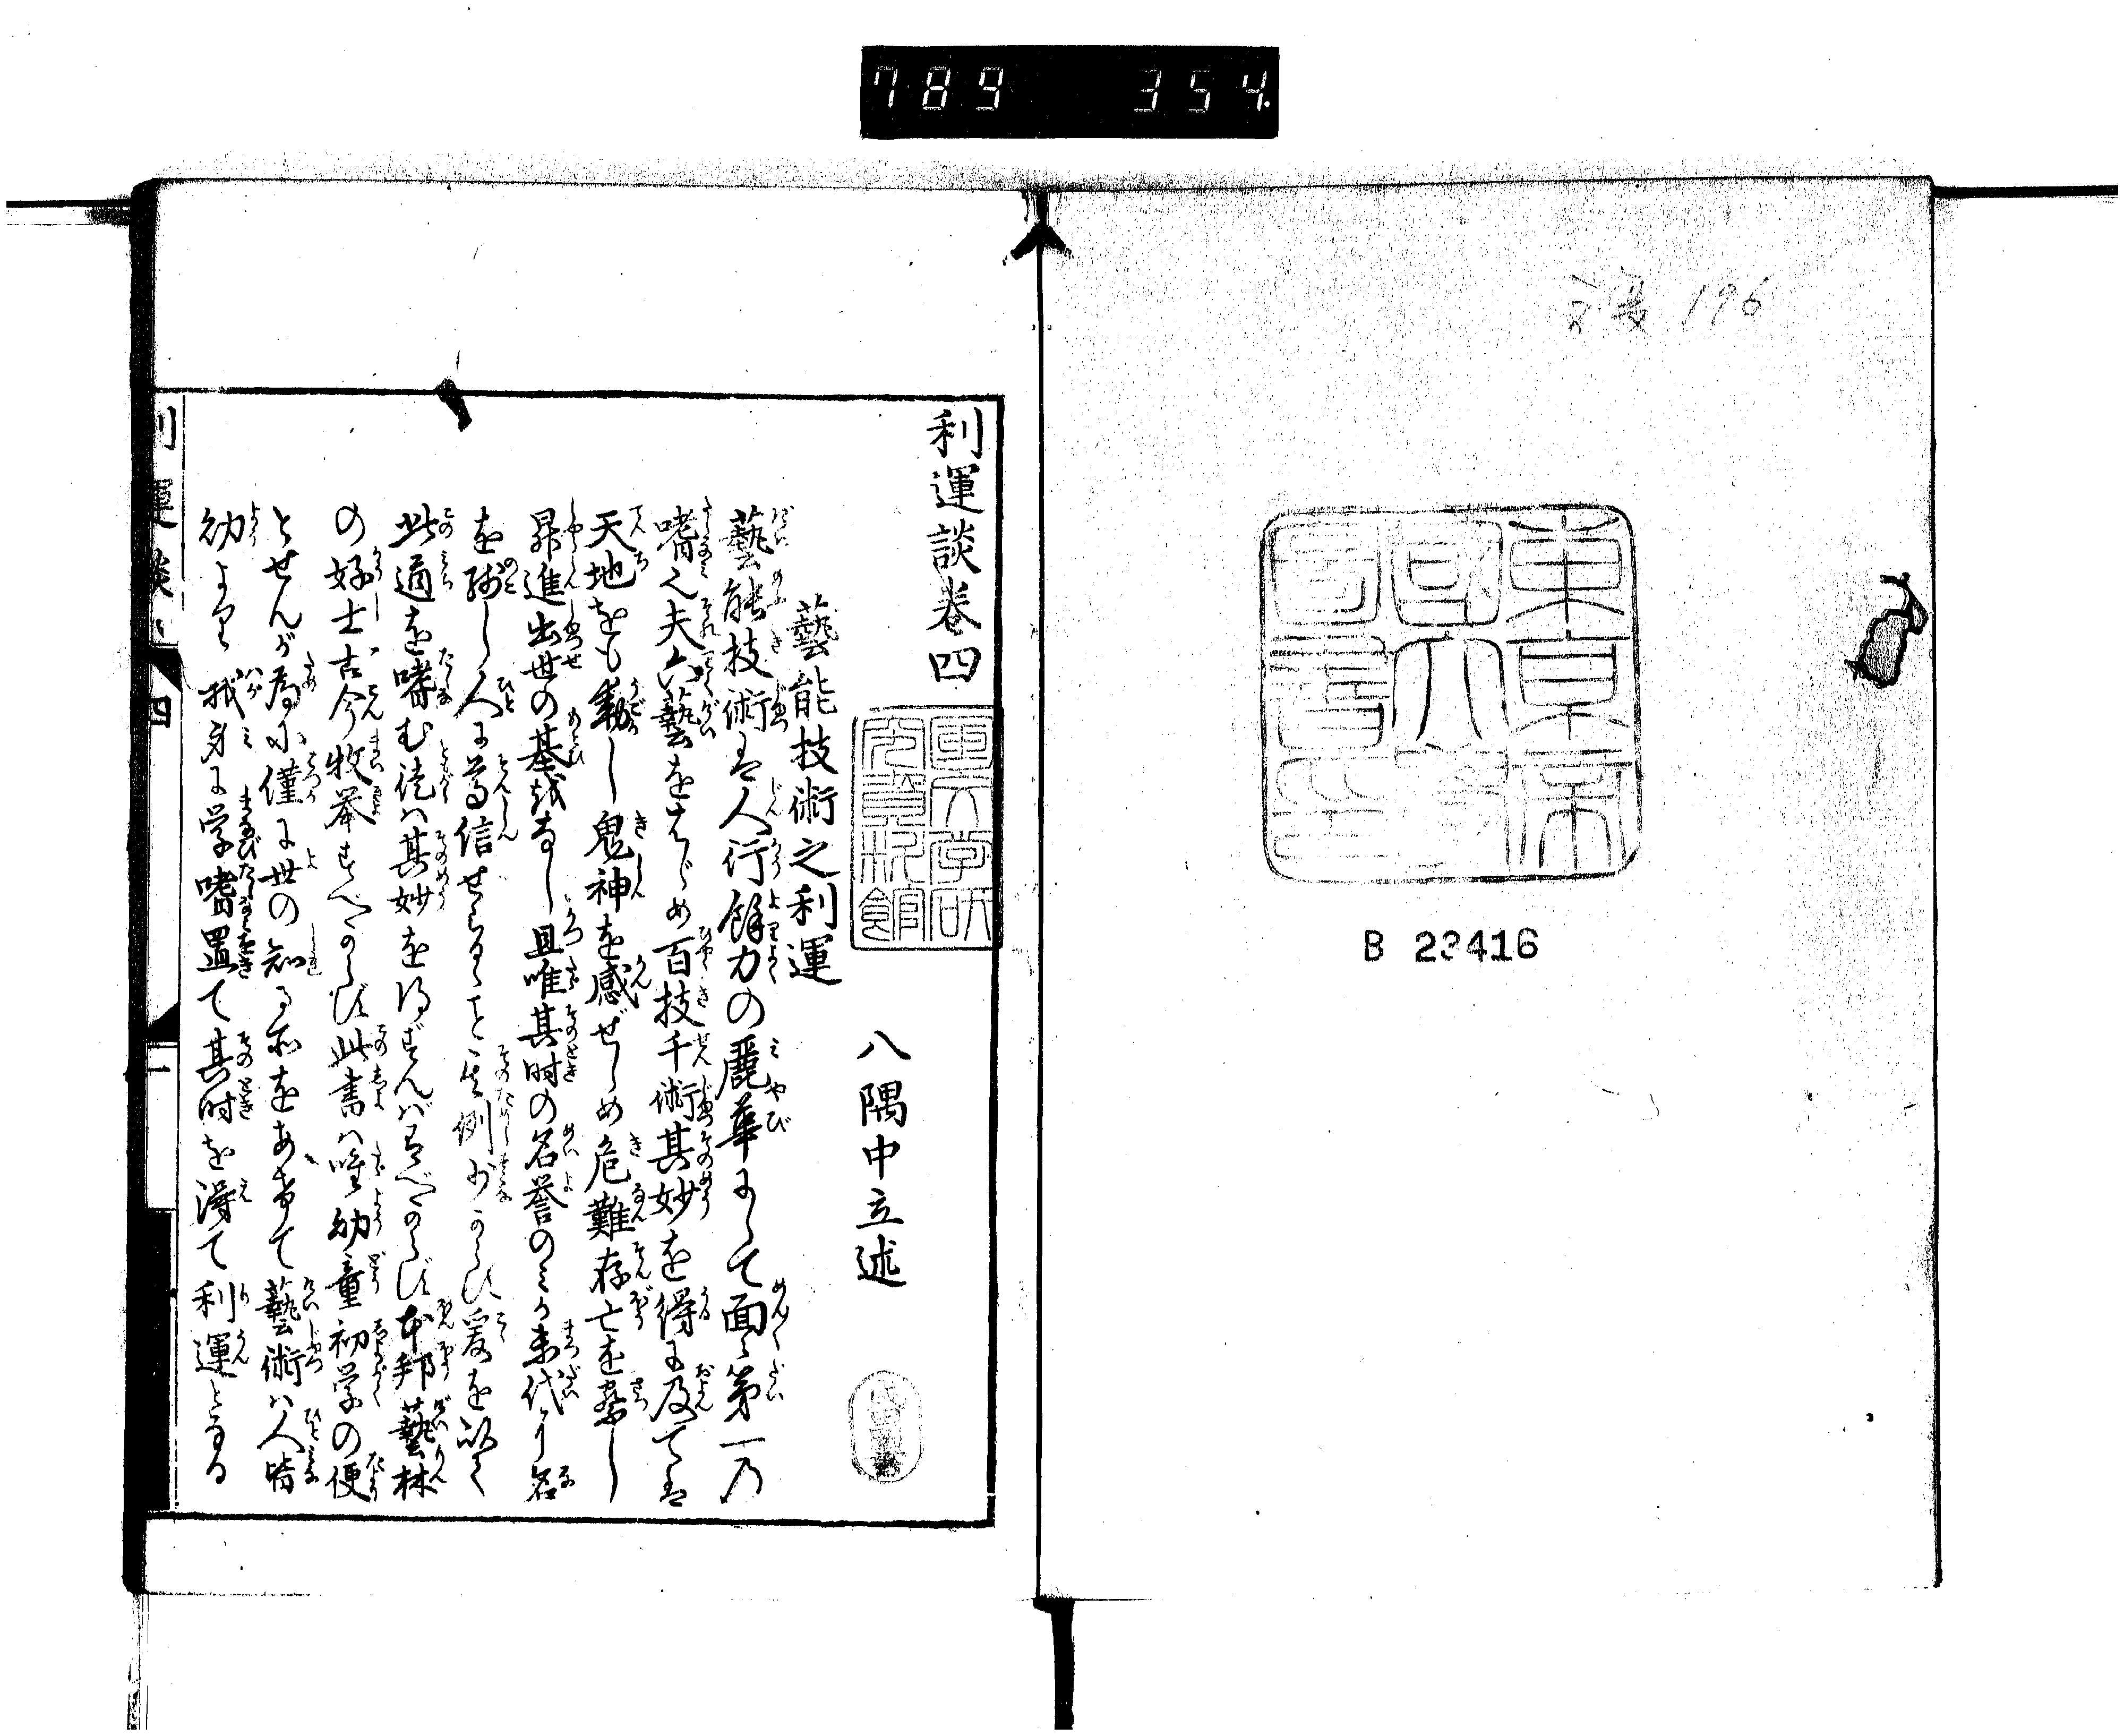 789 354.
文庫 196
東京帝
国大学
図書印
B 23416
利運談巻四
東大学研
究資料館
八隅中立述
藝能技術之利運
藝能技術は人行餘力の麗華にして面〻第一乃
嗜之夫六藝をはじめ百技千術其妙を得に及ては
天地をも動し鬼神を感ぜしめ危難存亡を察し
昇進出世の基越なし且唯其時の名誉のミか末代に名
を残し人に尊信せらるゝこと其例少からず爰を以て
此道を嗜む徒ハ其妙を得ずんば有べからず本邦藝林
の好士古今牧挙すべからず此書ハ唯幼童初学の便
とせんが為に僅に世の知る所をあげて藝術ハ人皆
幼より我身に学嗜置て其時を得て利運となる
利運談 四 一